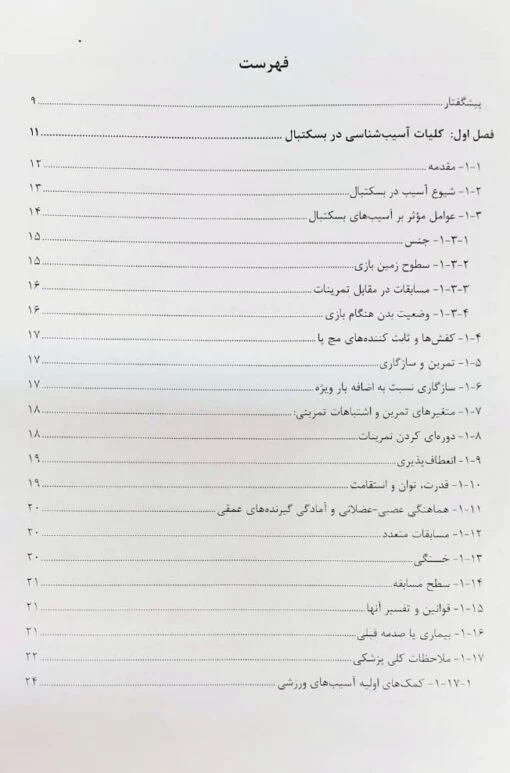 فهرست
پیشگفتار ........ ۹
فصل اول: کلیات آسیب‌شناسی در بسکتبال ........ ۱۱
۱-۱- مقدمه ........ ۱۲
۱-۲- شیوع آسیب در بسکتبال ........ ۱۳
۱-۳- عوامل مؤثر بر آسیب‌های بسکتبال ........ ۱۴
۱-۳-۱- جنس ........ ۱۵
۱-۳-۲- سطوح زمین بازی ........ ۱۵
۱-۳-۳- مسابقات در مقابل تمرینات ........ ۱۶
۱-۳-۴- وضعیت بدن هنگام بازی ........ ۱۶
۱-۴- کفش‌ها و ثابت کننده‌های مچ پا ........ ۱۷
۱-۵- تمرین و سازگاری ........ ۱۷
۱-۶- سازگاری نسبت به اضافه بار ویژه ........ ۱۷
۱-۷- متغیرهای تمرین و اشتباهات تمرینی: ........ ۱۸
۱-۸- دوره‌ای کردن تمرینات ........ ۱۸
۱-۹- انعطاف‌پذیری ........ ۱۹
۱-۱۰- قدرت، توان و استقامت ........ ۱۹
۱-۱۱- هماهنگی عصبی-عضلانی و آمادگی گیرنده‌های عمقی ........ ۲۰
۱-۱۲- مسابقات متعدد ........ ۲۰
۱-۱۳- خستگی ........ ۲۰
۱-۱۴- سطح مسابقه ........ ۲۱
۱-۱۵- قوانین و تفسیر آنها ........ ۲۱
۱-۱۶- بیماری یا صدمه قبلی ........ ۲۱
۱-۱۷- ملاحظات کلی پزشکی ........ ۲۲
۱-۱۷-۱- کمک‌های اولیه آسیب‌های ورزشی ........ ۲۴